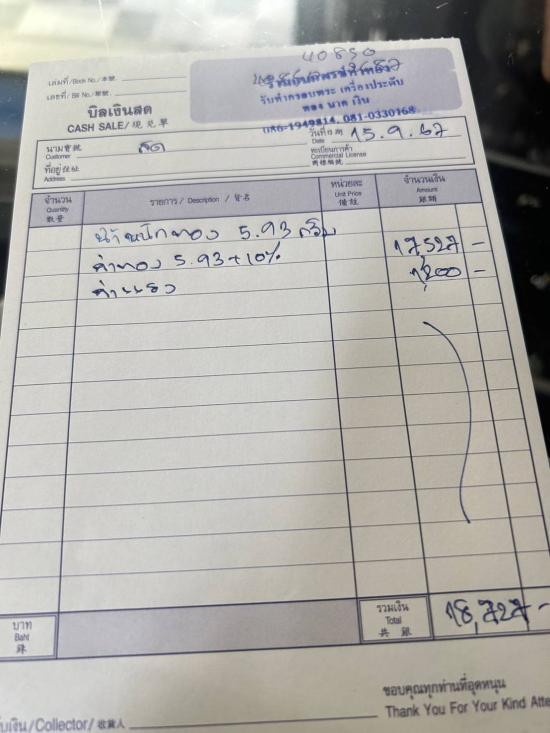 40850
เล่มที่/Book No./本號
เลขที่/ Bill No./單號
รับทำกรอบพระ เครื่องประดับ
ทอง นาค เงิน
086-1949814, 081-0330168
บิลเงินสด
CASH SALE/ 現兑單
วันที่日期 15.9.67
Date
นาม寶號
Customer
ทะเบียนการค้า
Commercial License
商標編號
ที่อยู่住址
Address
จำนวน
Quantity
數量
รายการ/ Description / 貨名
หน่วยละ
Unit Price
價銀
จำนวนเงิน
Amount
銀額
น้ำหนักทอง 5.93 กรัม
ค่าทอง 5.93+10% 17,527 -
ค่าแรง 1,200 -
บาท
Baht
銖
รวมเงิน
Total
共銀
18,727 -
ขอบคุณทุกท่านที่อุดหนุน
Thank You For Your Kind Atte
บเงิน/Collector/ 收貨人